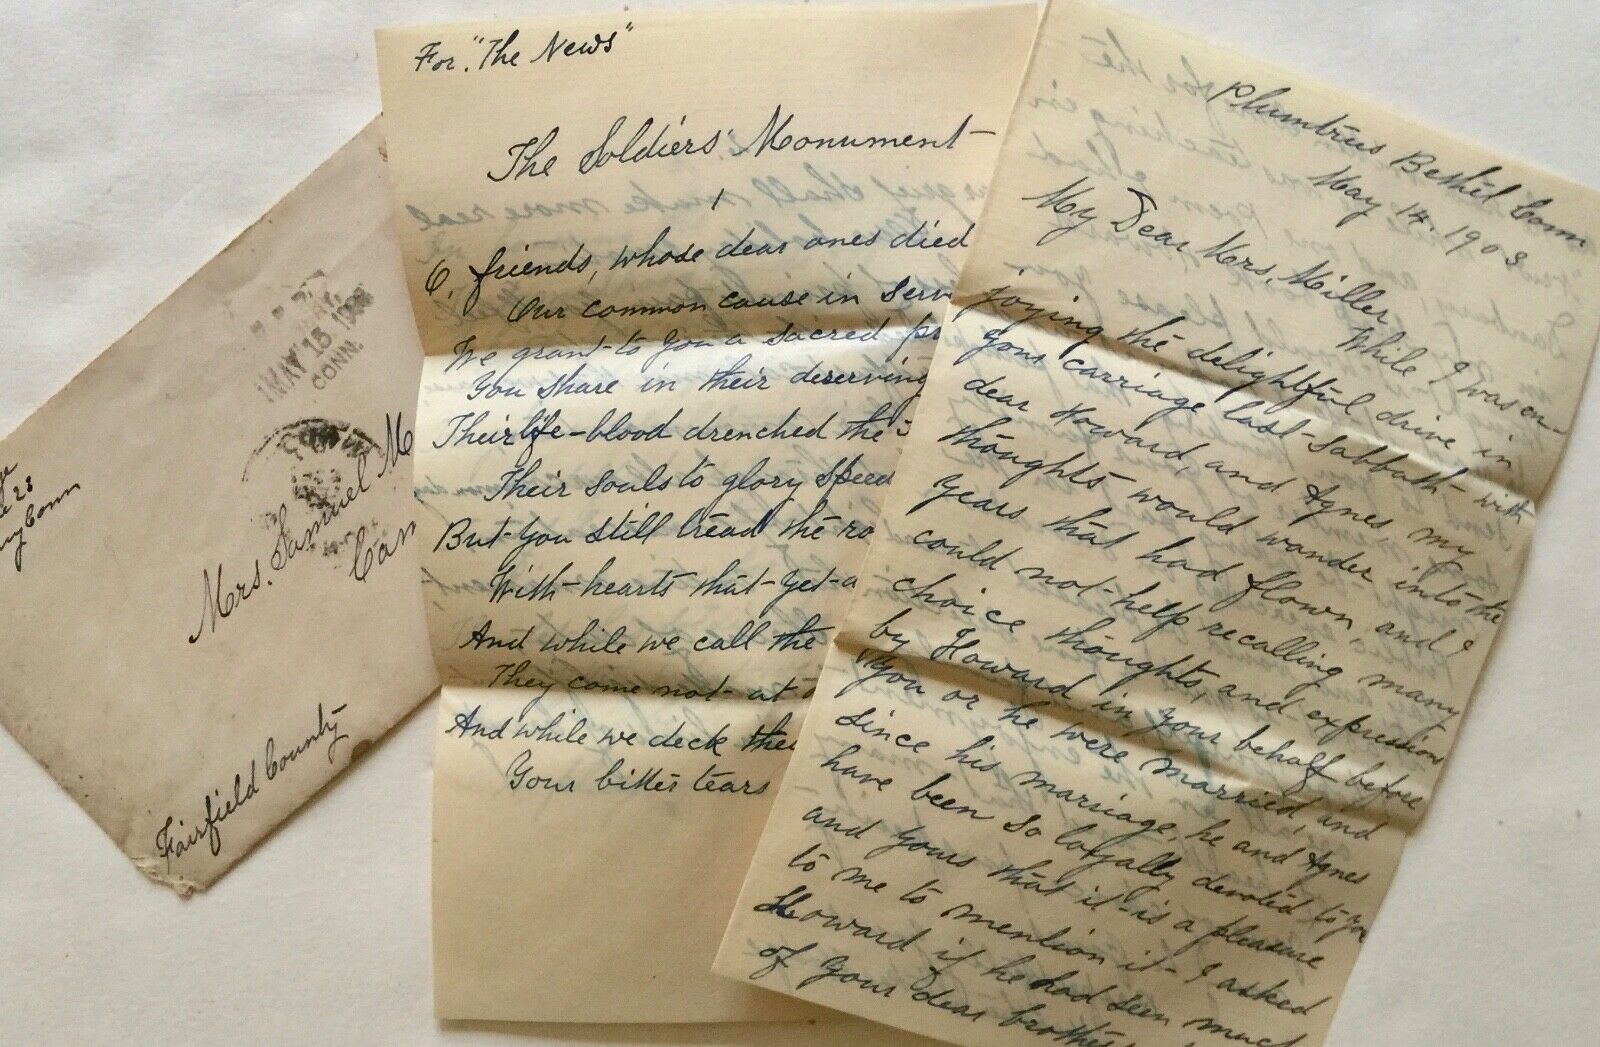 For "The News"
The Soldiers' Monument
O, friends, whose dear ones died
Our common cause in serv
We grant to you a sacred pr
You share in their deserving
Their life-blood drenched the
Their souls to glory speed
But you still tread the ro
With hearts that yet a
And while we call the
They come not at
And while we deck thei
Your bitter tears
Plumtrees Bethel Conn
May 14. 1903
My Dear Mrs. Miller,
While I was en-
joying the delightful drive in
your carriage last Sabbath with
dear Howard, and Agnes, my
thoughts would wander into the
years that had flown, and I
could not help recalling many
choice thoughts, and expressions
by Howard in your behalf before
you or he were married, and
since his marriage, he and Agnes
have been so loyally devoted to you
and yours that it is a pleasure
to me to mention it. I asked
Howard if he had seen much
of your dear brother
MAY 15
CONN.
23
Conn
Mrs. Samuel M
Fairfield County